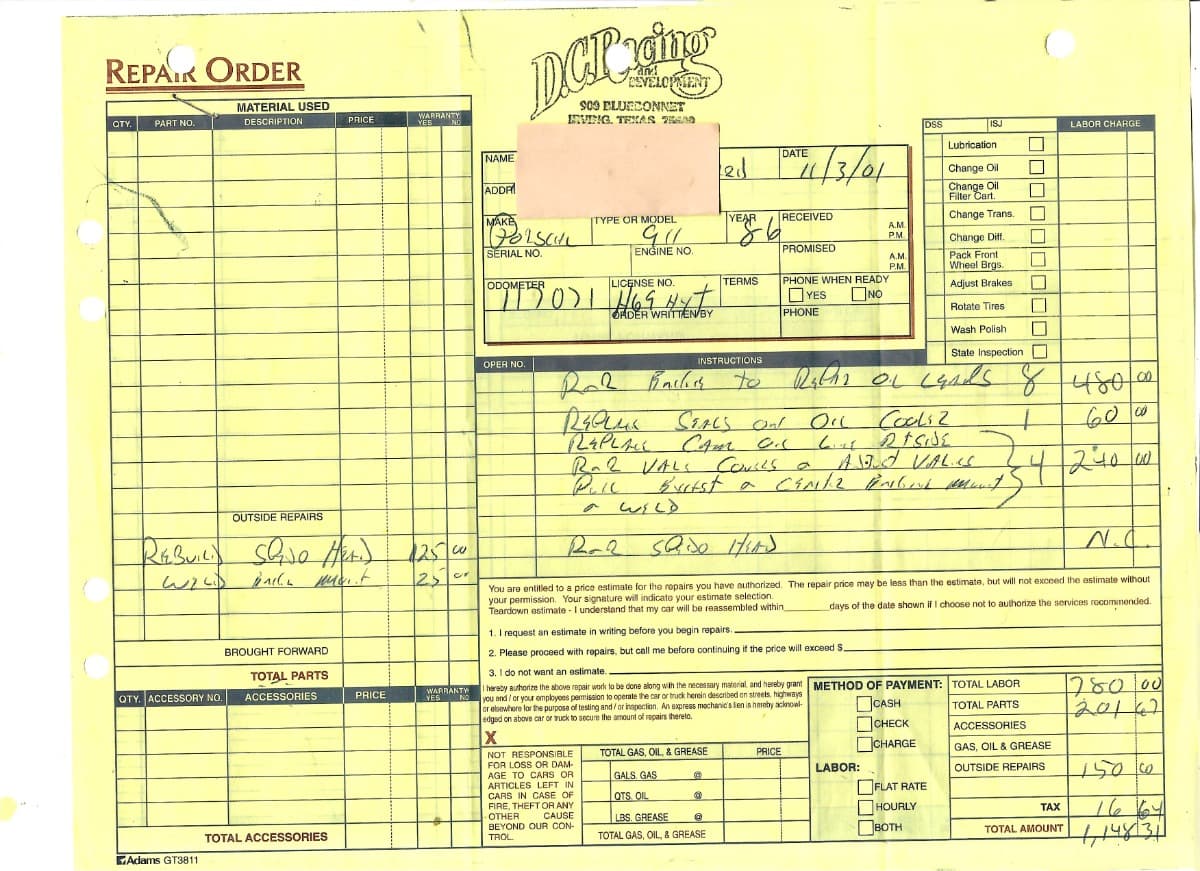 REPAIR ORDER
D.C. Racing
and
DEVELOPMENT
909 BLUEBONNET
IRVING, TEXAS
MATERIAL USED
QTY. PART NO. DESCRIPTION PRICE WARRANTY YES NO
NAME
DATE 11/3/01
ADDR
MAKE Porsche
TYPE OR MODEL 911
YEAR 86
RECEIVED A.M. P.M.
SERIAL NO.
ENGINE NO.
PROMISED A.M. P.M.
ODOMETER 117071
LICENSE NO. H69 HYT
TERMS
PHONE WHEN READY
YES NO
ORDER WRITTEN BY
PHONE
DSS ISJ LABOR CHARGE
Lubrication
Change Oil
Change Oil Filter Cart.
Change Trans.
Change Diff.
Pack Front Wheel Brgs.
Adjust Brakes
Rotate Tires
Wash Polish
State Inspection
OPER NO. INSTRUCTIONS
R&R Engine to Repair Oil Leaks 8 480 00
Replace Seals on Oil Cooler 1 60 00
Replace Cam Oil Line Rt Side
R&R Valve Covers & Adjust Valves 4 240 00
Pull & Center Engine mount
& Weld
R&R Speedo Head N.C.
OUTSIDE REPAIRS
Rebuild Speedo Head 125 00
Weld Engine Mount 25 00
BROUGHT FORWARD
TOTAL PARTS
QTY. ACCESSORY NO. ACCESSORIES PRICE WARRANTY YES NO
TOTAL ACCESSORIES
Adams GT3811
You are entitled to a price estimate for the repairs you have authorized. The repair price may be less than the estimate, but will not exceed the estimate without
your permission. Your signature will indicate your estimate selection.
Teardown estimate - I understand that my car will be reassembled within________days of the date shown if I choose not to authorize the services recommended.
1. I request an estimate in writing before you begin repairs.
2. Please proceed with repairs, but call me before continuing if the price will exceed $
3. I do not want an estimate.
I hereby authorize the above repair work to be done along with the necessary material, and hereby grant
you and / or your employees permission to operate the car or truck herein described on streets, highways
or elsewhere for the purpose of testing and / or inspection. An express mechanic's lien is hereby acknowl-
edged on above car or truck to secure the amount of repairs thereto.
X
NOT RESPONSIBLE
FOR LOSS OR DAM-
AGE TO CARS OR
ARTICLES LEFT IN
CARS IN CASE OF
FIRE, THEFT OR ANY
OTHER CAUSE
BEYOND OUR CON-
TROL.
TOTAL GAS, OIL, & GREASE PRICE
GALS. GAS @
QTS. OIL @
LBS. GREASE @
TOTAL GAS, OIL, & GREASE
METHOD OF PAYMENT:
CASH
CHECK
CHARGE
LABOR:
FLAT RATE
HOURLY
BOTH
TOTAL LABOR 780 00
TOTAL PARTS 201 67
ACCESSORIES
GAS, OIL & GREASE
OUTSIDE REPAIRS 150 00
TAX 16 64
TOTAL AMOUNT 1,148 31